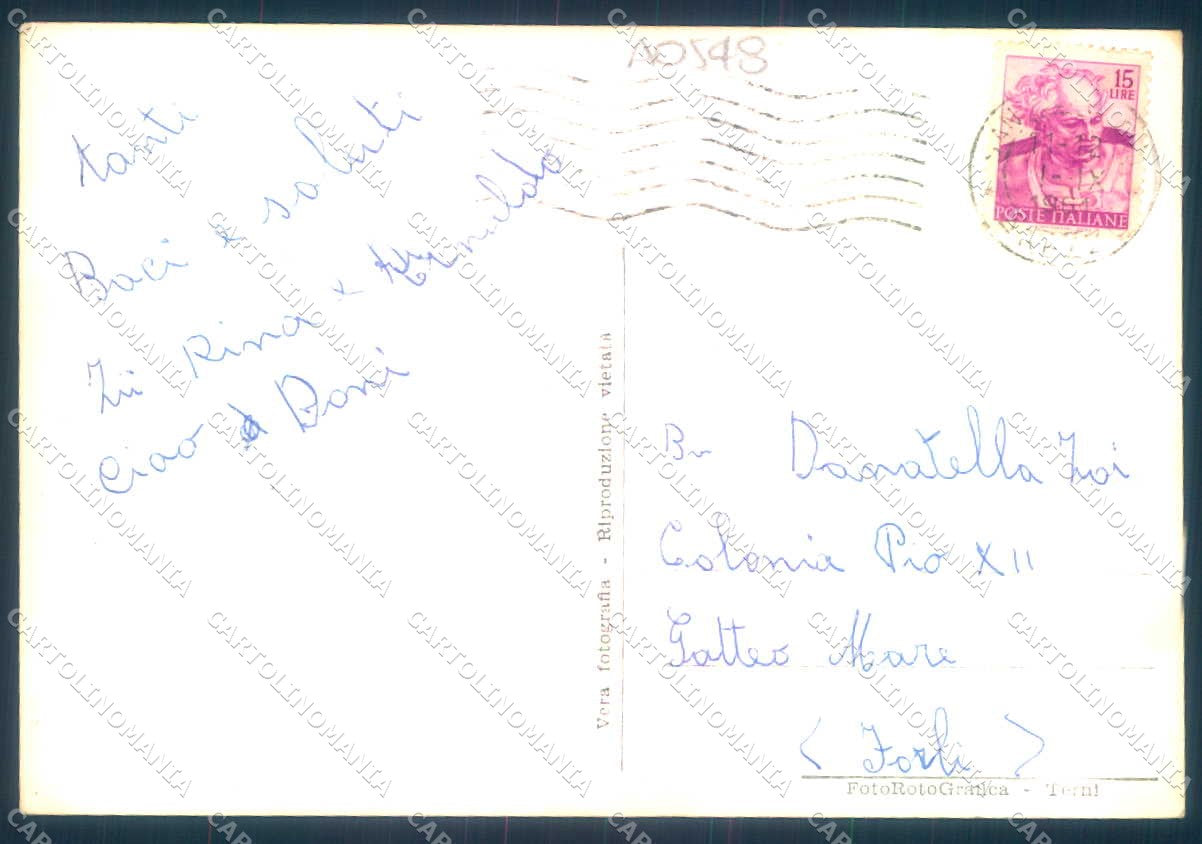 NO548
15
LIRE
POSTE ITALIANE
tanti
Baci e saluti
Zii Rina e
Ciao Doni
Vera fotografia - Riproduzione vietata
Donatella
Colonia Pio XII
Gatteo Mare
(Forlì)
FotoRotoGrafica - Terni
CARTOLINOMANIA